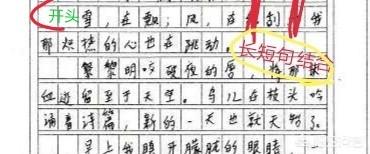 开头 雪，在飘；风，在刮我
那炽热的心也在跳动。 长短句结合
黎明 破夜的 将那
血迹留至于天空。鸟儿在枝头吟
诵着诗篇，新的一天也就开始了。
早上我睁开朦胧的眼睛，